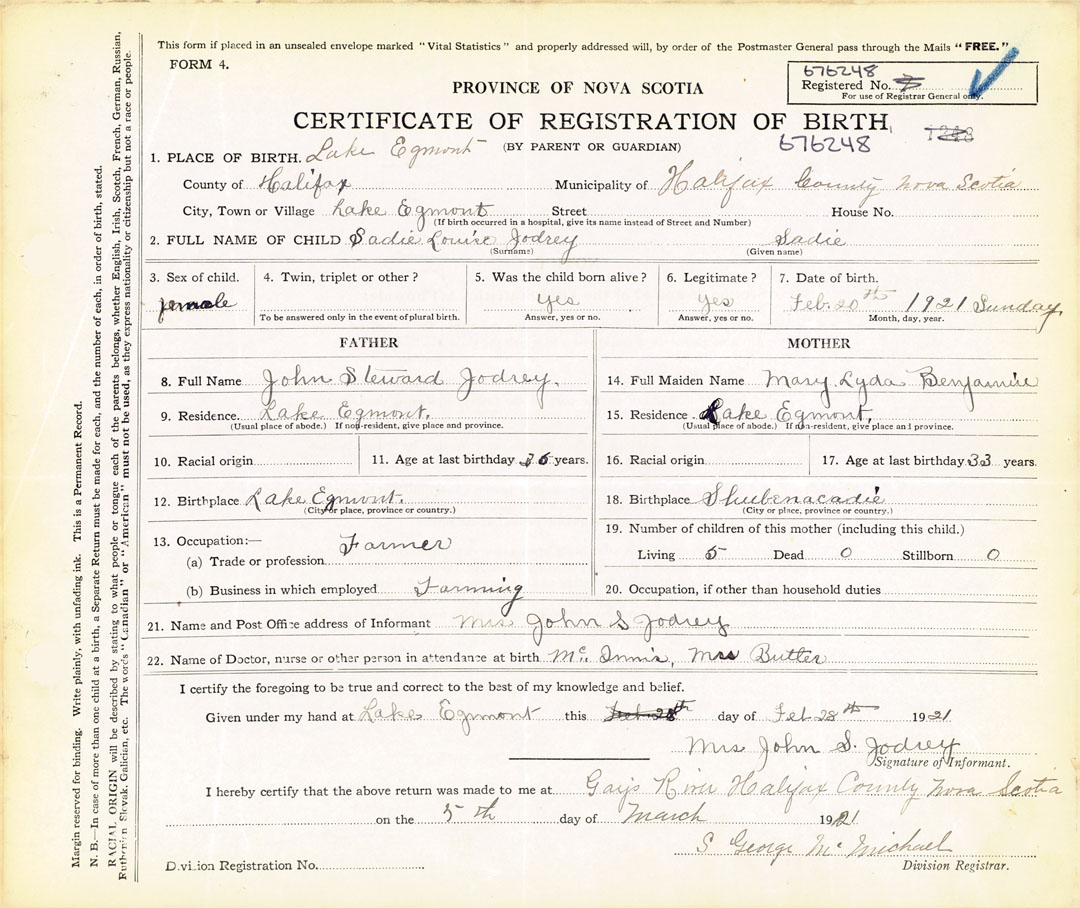 This form if placed in an unsealed envelope marked "Vital Statistics" and properly addressed will, by order of the Postmaster General pass through the Mails "FREE."
FORM 4.
676248
Registered No.
For use of Registrar General only.
PROVINCE OF NOVA SCOTIA
CERTIFICATE OF REGISTRATION OF BIRTH
(BY PARENT OR GUARDIAN)
676248
1. PLACE OF BIRTH. Lake Egmont
County of Halifax Municipality of Halifax County Nova Scotia
City, Town or Village Lake Egmont Street House No.
(If birth occurred in a hospital, give its name instead of Street and Number)
2. FULL NAME OF CHILD Sadie Louise Jodrey Sadie
(Surname) (Given name)
3. Sex of child. 4. Twin, triplet or other? 5. Was the child born alive? 6. Legitimate? 7. Date of birth.
female Yes Yes Feb. 20th 1921 Sunday
To be answered only in the event of plural birth. Answer, yes or no. Answer, yes or no. Month, day, year.
FATHER
8. Full Name John Steward Jodrey.
9. Residence. Lake Egmont.
(Usual place of abode.) If non-resident, give place and province.
10. Racial origin 11. Age at last birthday 36 years.
12. Birthplace Lake Egmont.
(City or place, province or country.)
13. Occupation:— Farmer
(a) Trade or profession
(b) Business in which employed Farming
MOTHER
14. Full Maiden Name Mary Lyda Benjamin
15. Residence Lake Egmont.
(Usual place of abode.) If non-resident, give place and province.
16. Racial origin 17. Age at last birthday 33 years.
18. Birthplace Shubenacadie
(City or place, province or country.)
19. Number of children of this mother (including this child.)
Living 5 Dead 0 Stillborn 0
20. Occupation, if other than household duties
21. Name and Post Office address of Informant Mrs John S Jodrey
22. Name of Doctor, nurse or other person in attendance at birth Mc Innis, Mrs Butler
I certify the foregoing to be true and correct to the best of my knowledge and belief.
Given under my hand at Lake Egmont this day of Feb 28th 1921
Mrs John S. Jodrey
Signature of Informant.
I hereby certify that the above return was made to me at Gays River Halifax County Nova Scotia
on the 5th day of March 1921
S George Mc Michael
Division Registration No. Division Registrar.
Margin reserved for binding. Write plainly, with unfading ink. This is a Permanent Record.
N. B.—In case of more than one child at a birth, a Separate Return must be made for each, and the number of each, in order of birth, stated.
RACIAL ORIGIN will be described by stating to what people or tongue each of the parents belongs, whether English, Irish, Scotch, French, German, Russian,
Ruthenian, Slovak, Galician, etc. The words "Canadian" or "American" must not be used, as they express nationality or citizenship but not a race or people.